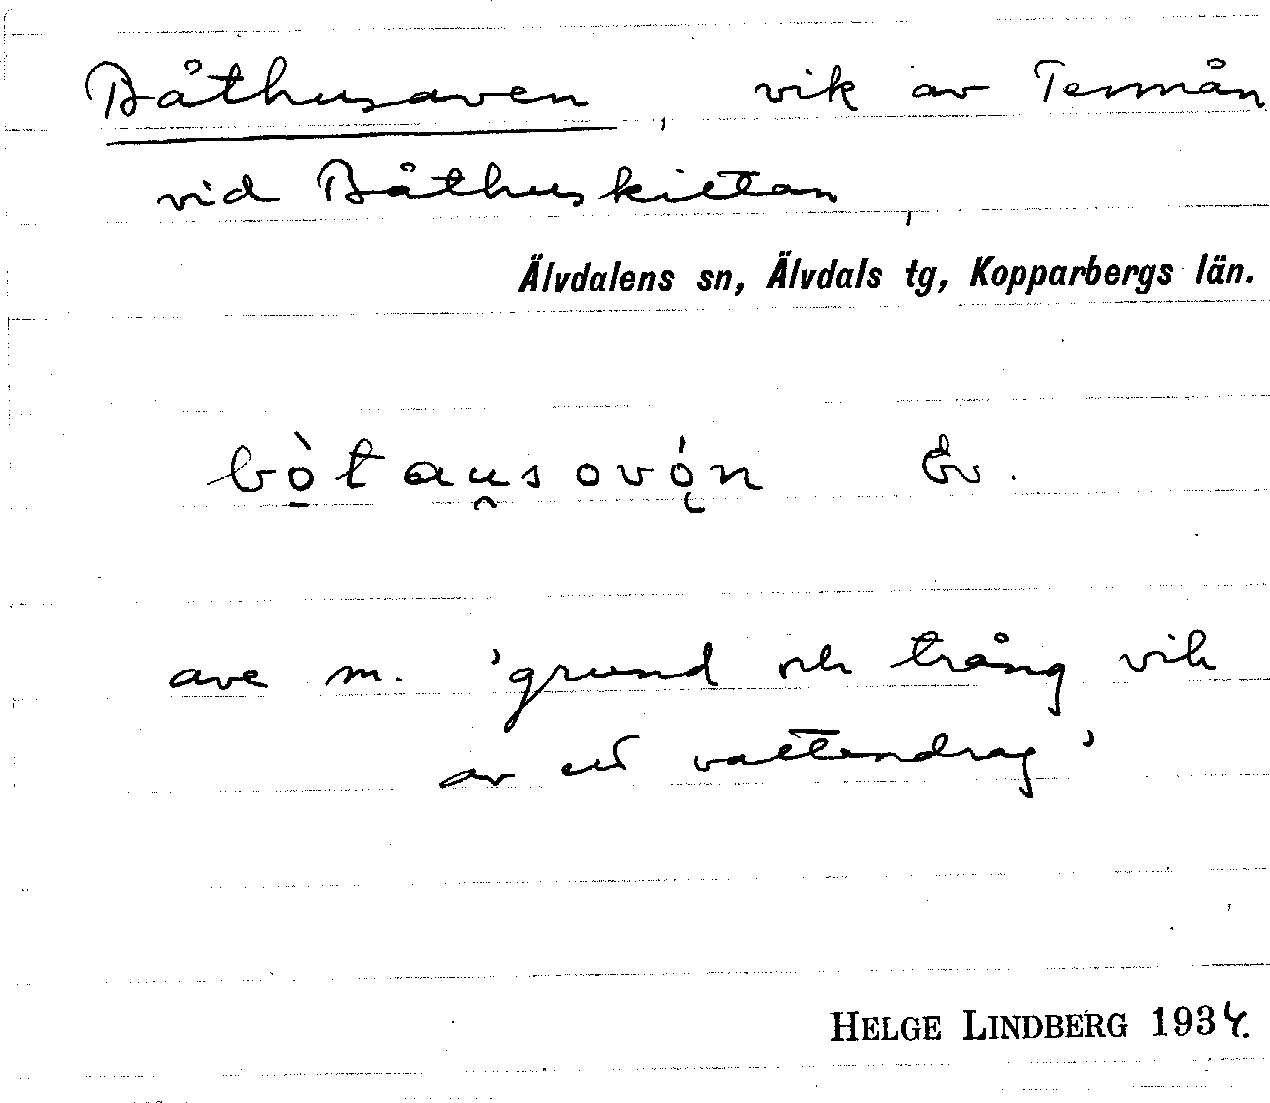 Båthusaven, vik av Tennån
vid Båthuskittan,
Älvdalens sn, Älvdals tg, Kopparbergs län.
bò̱tau̯sovǫ́n Ev.
ave m. 'grund och trång vik
av ett vattendrag'
HELGE LINDBERG 1934.